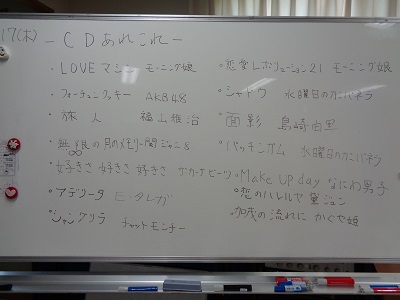 17(木) -CDあれこれ-
・LOVEマシーン モーニング娘
・フォーチュンクッキー AKB48
・旅人 福山雅治
・無限の
・好きさ好きさ好きさ ザ・カーナビーツ
・アデリータ E・タレガ
・シャングリラ チャットモンチー
・恋愛レボリューション21 モーニング娘
・シャドウ 水曜日のカンパネラ
・面影 島崎由里
・バッチンガム 水曜日のカンパネラ
・Make UP day なにわ男子
・恋のハレルヤ 黛ジュン
・加茂の流れに かぐや姫